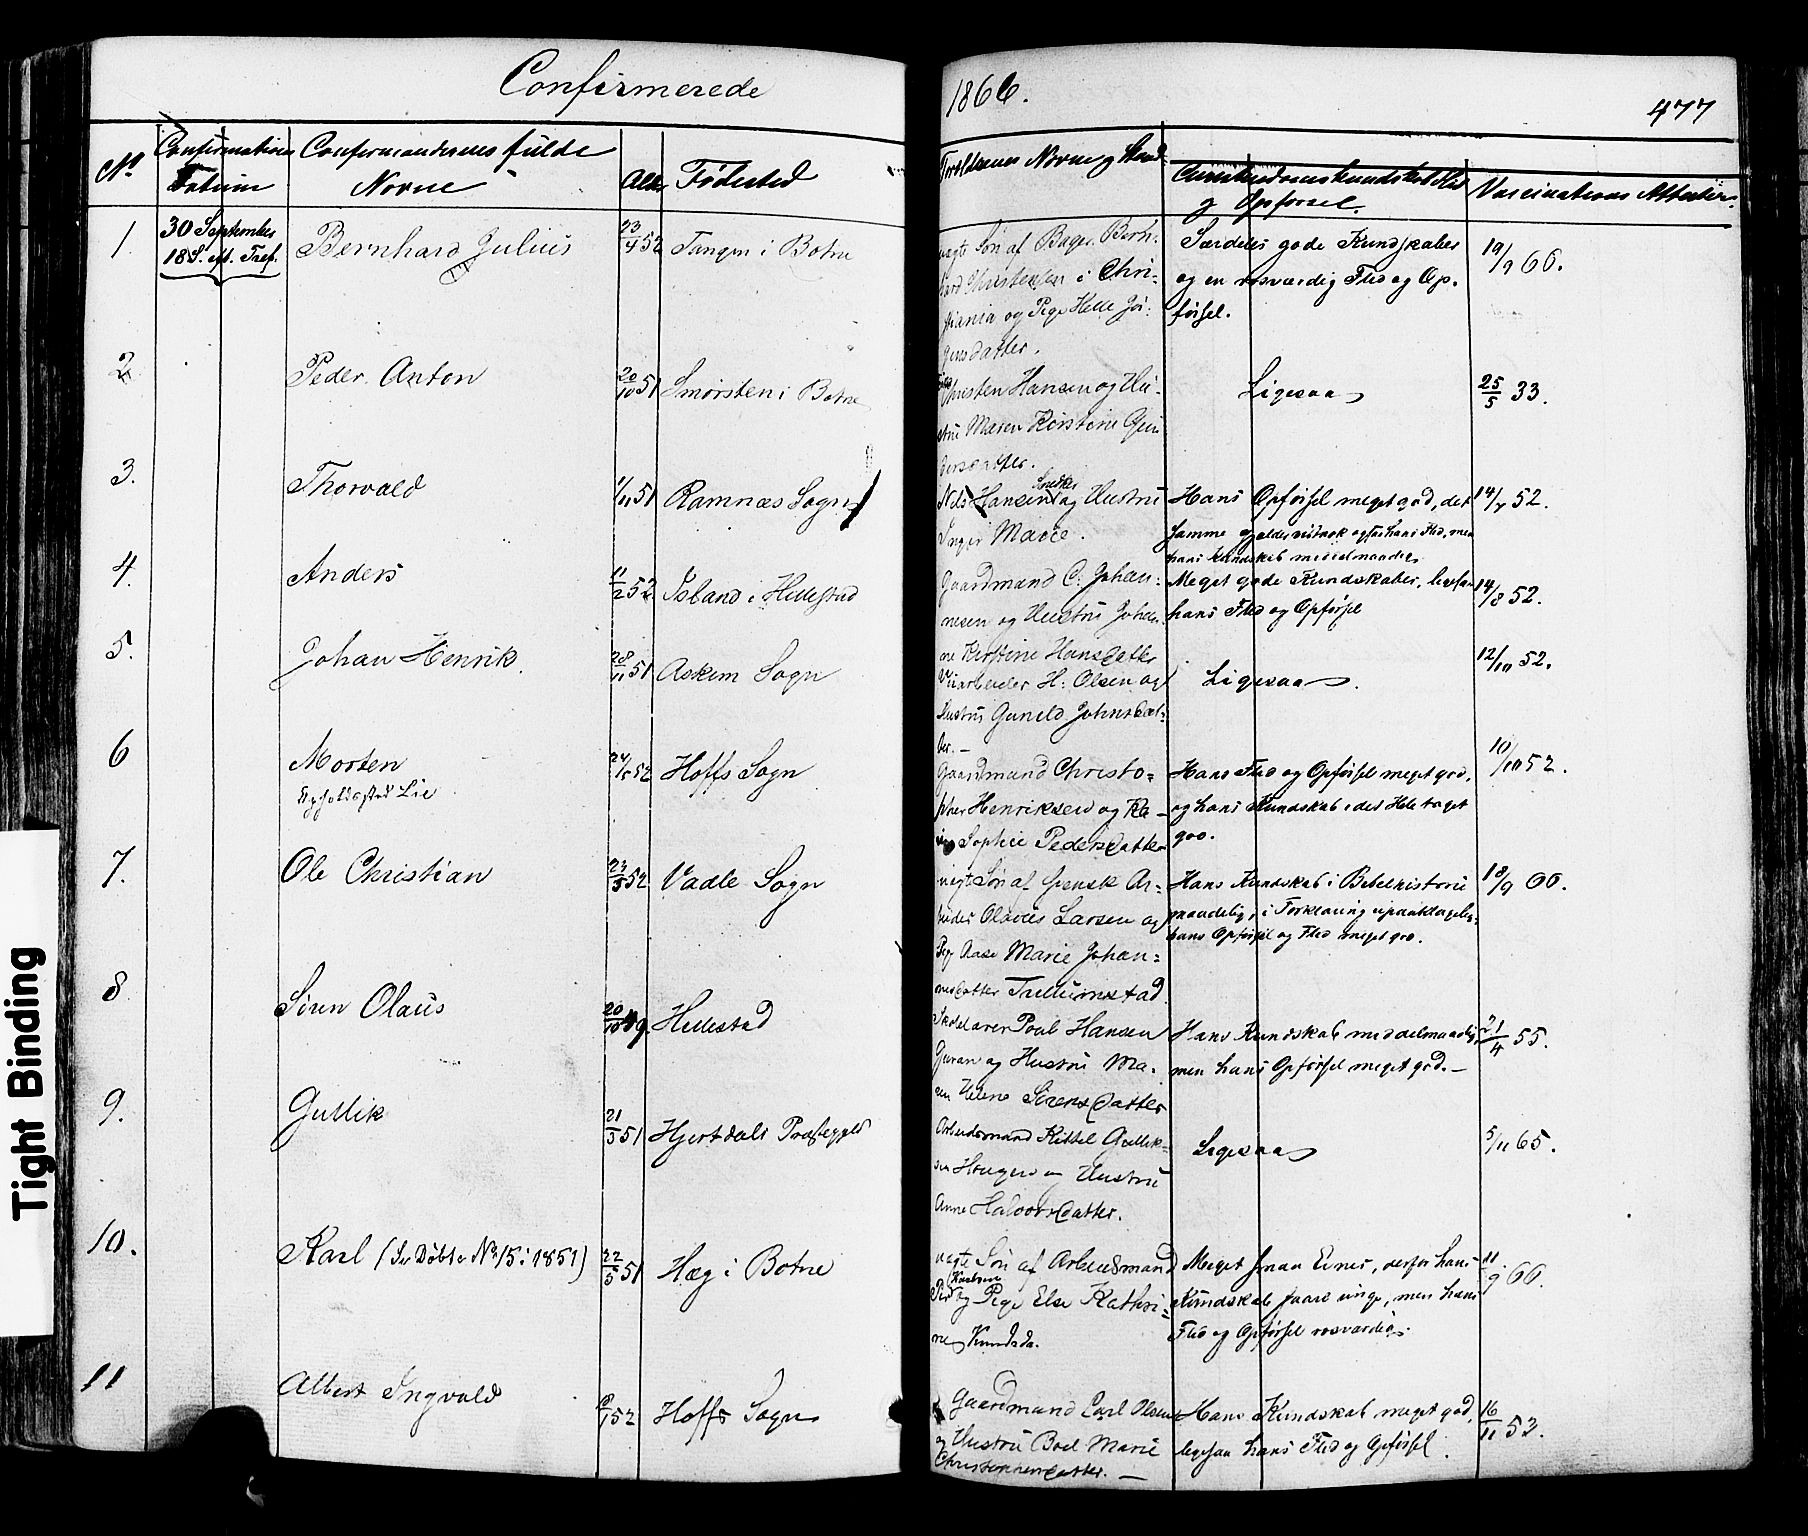 Confirmerede
1866.
477
No
Confirmations Datum
Confirmandernes fulde Navne
Alder
Födested
Forældrenes Navne og Stand
Christendomskundskab Flid og Opførsel.
Vaccinations Attester.
1.
30 September
18 S. eft. Tref.
Bernhard Julius
23/4 52
Tangen i Botne
uægte Søn af Bager Bern-
hard Christensen i Chri-
stiania og Pige Helle Jør-
gensdatter.
Særdeles gode Kundskaber
og en rosværdig Flid og Op-
førsel.
19/9 66.
2
Peder Anton
20/10 51
Smörsten i Botne
Christen Hansen og Hu-
stru Maren Kirstine Gun
dersdatter.
Ligesaa
25/5 33.
3.
Thorvald
1/11 51
Ramnæs Sogn
Nils Hansen og Hustru
Inger Marie.
Hans Opførsel meget god, det
samme gjelder ogsaa hans Flid, men
hans Kundskab middelmaadig
14/7 52.
4.
Anders
11/2 52
Island i Hillestad
Gaardmand C. Johan-
nesen og Hustru Johan
ne Kirstine Hansdatter
Meget gode Kundskaber, ligesaa
hans Flid og Opførsel
14/8 52.
5.
Johan Henrik
28/11 51
Askim Sogn
H. Olsen og
Hustru Gunild Johnsdat-
ter.
Ligesaa.
12/10 52.
6
Morten
Opholdssted Lie
24/5 52
Hoffs Sogn
Gaardmand Christo-
pher Henriksen og Ka-
Sophie Pedersdatter
Hans Flid og Opførsel meget god,
og hans Kundskab i det Hele taget
god.
10/10 52.
7.
Ole Christian
23/3 52
Vadle Sogn
uægte Søn af svensk Ar-
beider Olaus Larsen og
Pige Aase Marie Johan-
nesdatter
Hans Kundskab i Bibelhistorie
maadelig, i Forklaring upaaklagelig,
hans Opførsel og Flid meget god.
18/9 66.
8
Sören Olaus
20/10 49
Hillestad
Skolelærer Poul Hansen
og Hustru Ma-
ren Helene Sörensdatter
Hans Kundskab middelmaadig,
men hans Opførsel meget god.-
21/4 55.
9.
Gullik
21/3 51
Hjertdals Præstegjeld
Arbeidsmand Kittel Gullik-
sen Haugen og Hustru
Anne Halvorsdatter.
Ligesaa
5/11 65.
10.
Karl (Se Döbte No 15: 1851)
22/5 51
Hæg i Botne
uægte Søn af Arbeidsmand
og Pige Else Kathri-
ne Knudsda.
Meget smaa Evner, derfor hans
Kundskab saare ringe, men hans
Flid og Opførsel rosværdig.
11/9 66.
11
Albert Ingvald
8/1 52
Hoffs Sogn
Gaardmand Carl Olsen
og Hustru Boel Marie
Christophersdatter. -
Hans Kundskab meget god,
ligesaa hans Flid og Opførsel.
16/11 53.
Tight Binding